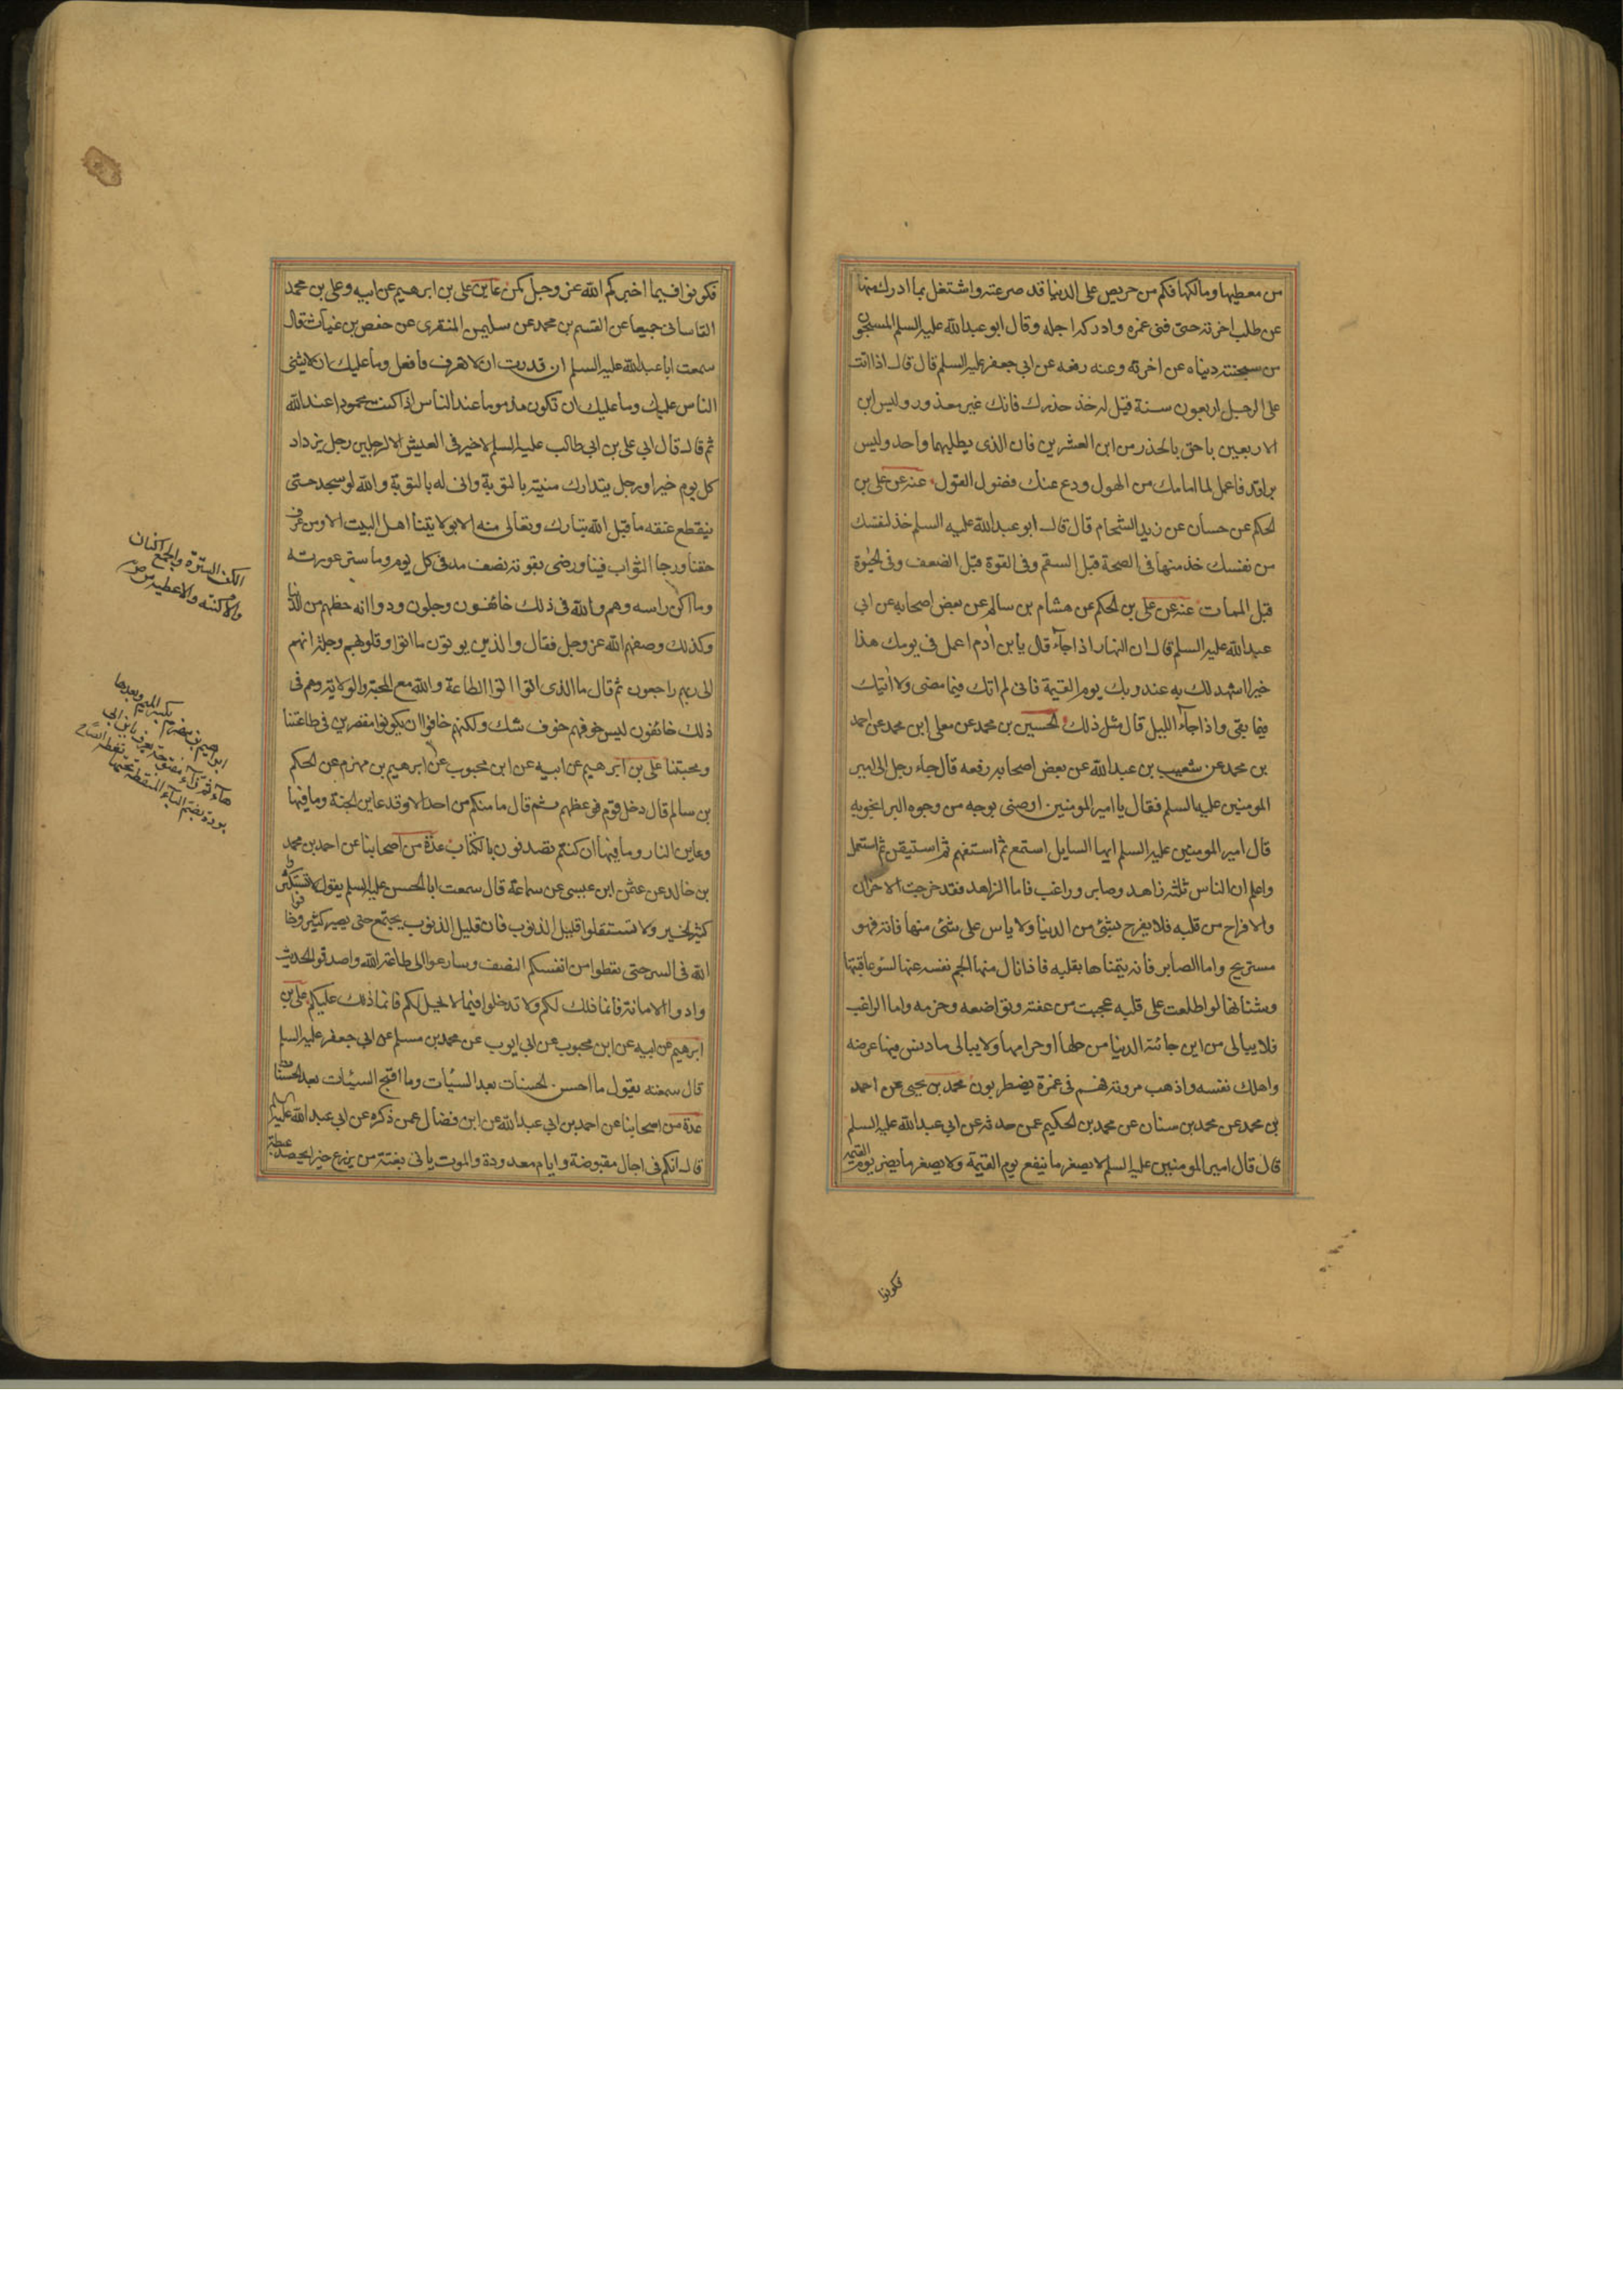 من معطيها ومالكها فكم من حريص على الدنيا قد صرعته واشتغل بما ادرك منها
عن طلب اخرته حتى فنى عمره وادركه اجله وقال ابو عبدالله عليه السلم المسجون
من سجنته دنياه عن اخرته وعنه رفعه عن ابى جعفر عليه السلم قال قال اذا اتت
على الرجل اربعون سنة قيل له خذ حذرك فانك غير معذور وليس ابن
الاربعين باحق بالحذر من ابن العشرين فان الذى يطلبهما واحد وليس
براقد فاعمل لما امامك من الهول ودع عنك فضول القول عنه عن على بن
الحكم عن حسان عن زيد الشحام قال قال ابو عبدالله عليه السلم خذ لنفسك
من نفسك خذ منها فى الصحة قبل السقم وفى القوة قبل الضعف وفى الحيوة
قبل الممات عنه عن على بن الحكم عن هشام بن سالم عن بعض اصحابه عن ابى
عبدالله عليه السلم قال ان النهار اذا جاء قال يا بن ادم اعمل فى يومك هذا
خيرا اشهد لك به عند ربك يوم القيمة فانى لم اتك فيما مضى ولا اتيك
فيما بقى واذا جاء الليل قال مثل ذلك الحسين بن محمد عن معلى ابن محمد عن احمد
بن محمد عن شعيب بن عبدالله عن بعض اصحابه رفعه قال جاء رجل الى امير
المومنين عليه السلم فقال يا امير المومنين اوصنى بوجه من وجوه البر انجو به
قال امير المومنين عليه السلم ايها السايل استمع ثم استفهم ثم استيقن ثم استعمل
واعلم ان الناس ثلثه زاهد وصابر وراغب فاما الزاهد فقد خرجت الاحزان
والافراح من قلبه فلا يفرح بشئ من الدنيا ولا ياس على شئ منها فاته فهو
مستريح واما الصابر فانه يتمناها بقلبه فاذا نال منها الجم نفسه عنها لسوء عاقبتها
وشنانها لو اطلعت على قلبه عجبت من عفته وتواضعه وحزمه واما الراغب
فلا يبالى من اين جائته الدنيا من حلها او حرامها ولا يبالى ما دنس فيها عرضه
واهلك نفسه واذهب مروته فهم فى غمرة يضطربون محمد بن يحيى عن احمد
بن محمد عن محمد بن سنان عن محمد بن الحكيم عمن حدثه عن ابى عبدالله عليه السلم
قال قال امير المومنين عليه السلم لا يصغر ما ينفع يوم القيمة ولا يصغر ما يضر يوم القيمه
فكونوا
فكونوا فيما اخبركم الله عز وجل كمن عاين على بن ابرهيم عن ابيه وعلى بن محمد
القاسانى جميعا عن القسم بن محمد عن سليمن المنقرى عن حفص بن غياث قال
سمعت ابا عبدالله عليه السلم ان قدرت ان لا تعرف فافعل وما عليك ان لا يثنى
الناس عليك وما عليك ان تكون مذموما عند الناس اذا كنت محمودا عند الله
ثم قال قال ابى على بن ابى طالب عليه السلم لا خير فى العيش الا لرجلين رجل يزداد
كل يوم خيرا ورجل يتدارك منيته بالتوبة وانى له بالتوبة والله لو سجد حتى
ينقطع عنقه ما قبل الله تبارك وتعالى منه الا بولايتنا اهل البيت الا ومن عرف
حقنا ورجا الثواب فينا ورضى بقوته نصف مد فى كل يوم وما ستر عورته
وما اكن راسه وهم والله فى ذلك خائفون وجلون ودوا انه حظهم من الدنيا
وكذلك وصفهم الله عز وجل فقال والذين يوتون ما اتوا وقلوبهم وجلة انهم
الى ربهم راجعون ثم قال ما الذى اتوا اتوا الطاعة والله مع المحبة والولاية وهم فى
ذلك خائفون ليس خوفهم خوف شك ولكنهم خافوا ان يكونوا مقصرين فى طاعتنا
ومحبتنا على بن ابرهيم عن ابيه عن ابن محبوب عن ابرهيم بن مهزم عن الحكم
بن سالم قال دخل قوم فوعظهم ثم قال ما منكم من احد الا وقد عاين الجنة وما فيها
وعاين النار وما فيها ان كنتم تصدقون بالكتاب عدة من اصحابنا عن احمد بن محمد
بن خالد عن عثمن ابن عيسى عن سماعة قال سمعت ابا الحسن عليه السلم يقول لا تستكثروا
كثير الخير ولا تستقلوا قليل الذنوب فان قليل الذنوب يجتمع حتى يصير كثير وخافوا
الله فى السر حتى تعطوا من انفسكم النصف وسارعوا الى طاعة الله واصدقوا الحديث
وادوا الامانة فانما ذلك لكم ولا تدخلوا فيما لا يحل لكم فانما ذلك عليكم على بن
ابرهيم عن ابيه عن ابن محبوب عن ابى ايوب عن محمد بن مسلم عن ابى جعفر عليه السلم
قال سمعته يقول ما احسن الحسنات بعد السيئات وما اقبح السيئات بعد الحسنات
عدة من اصحابنا عن احمد بن ابى عبدالله عن ابن فضال عمن ذكره عن ابى عبدالله عليه السلم
قال انكم فى اجال مقبوضة وايام معدودة والموت ياتى بغتة من يزرع خيرا يحصد غبطة
الكن السترة والجمع اكنان
والاكنة والاغطية ص
ابراهيم بن مهزم بكسر الميم وبعدها
هاء ثم زاء مفتوحة يعرف بابن ابى
بردة بضم الباء المنقطة تحتها